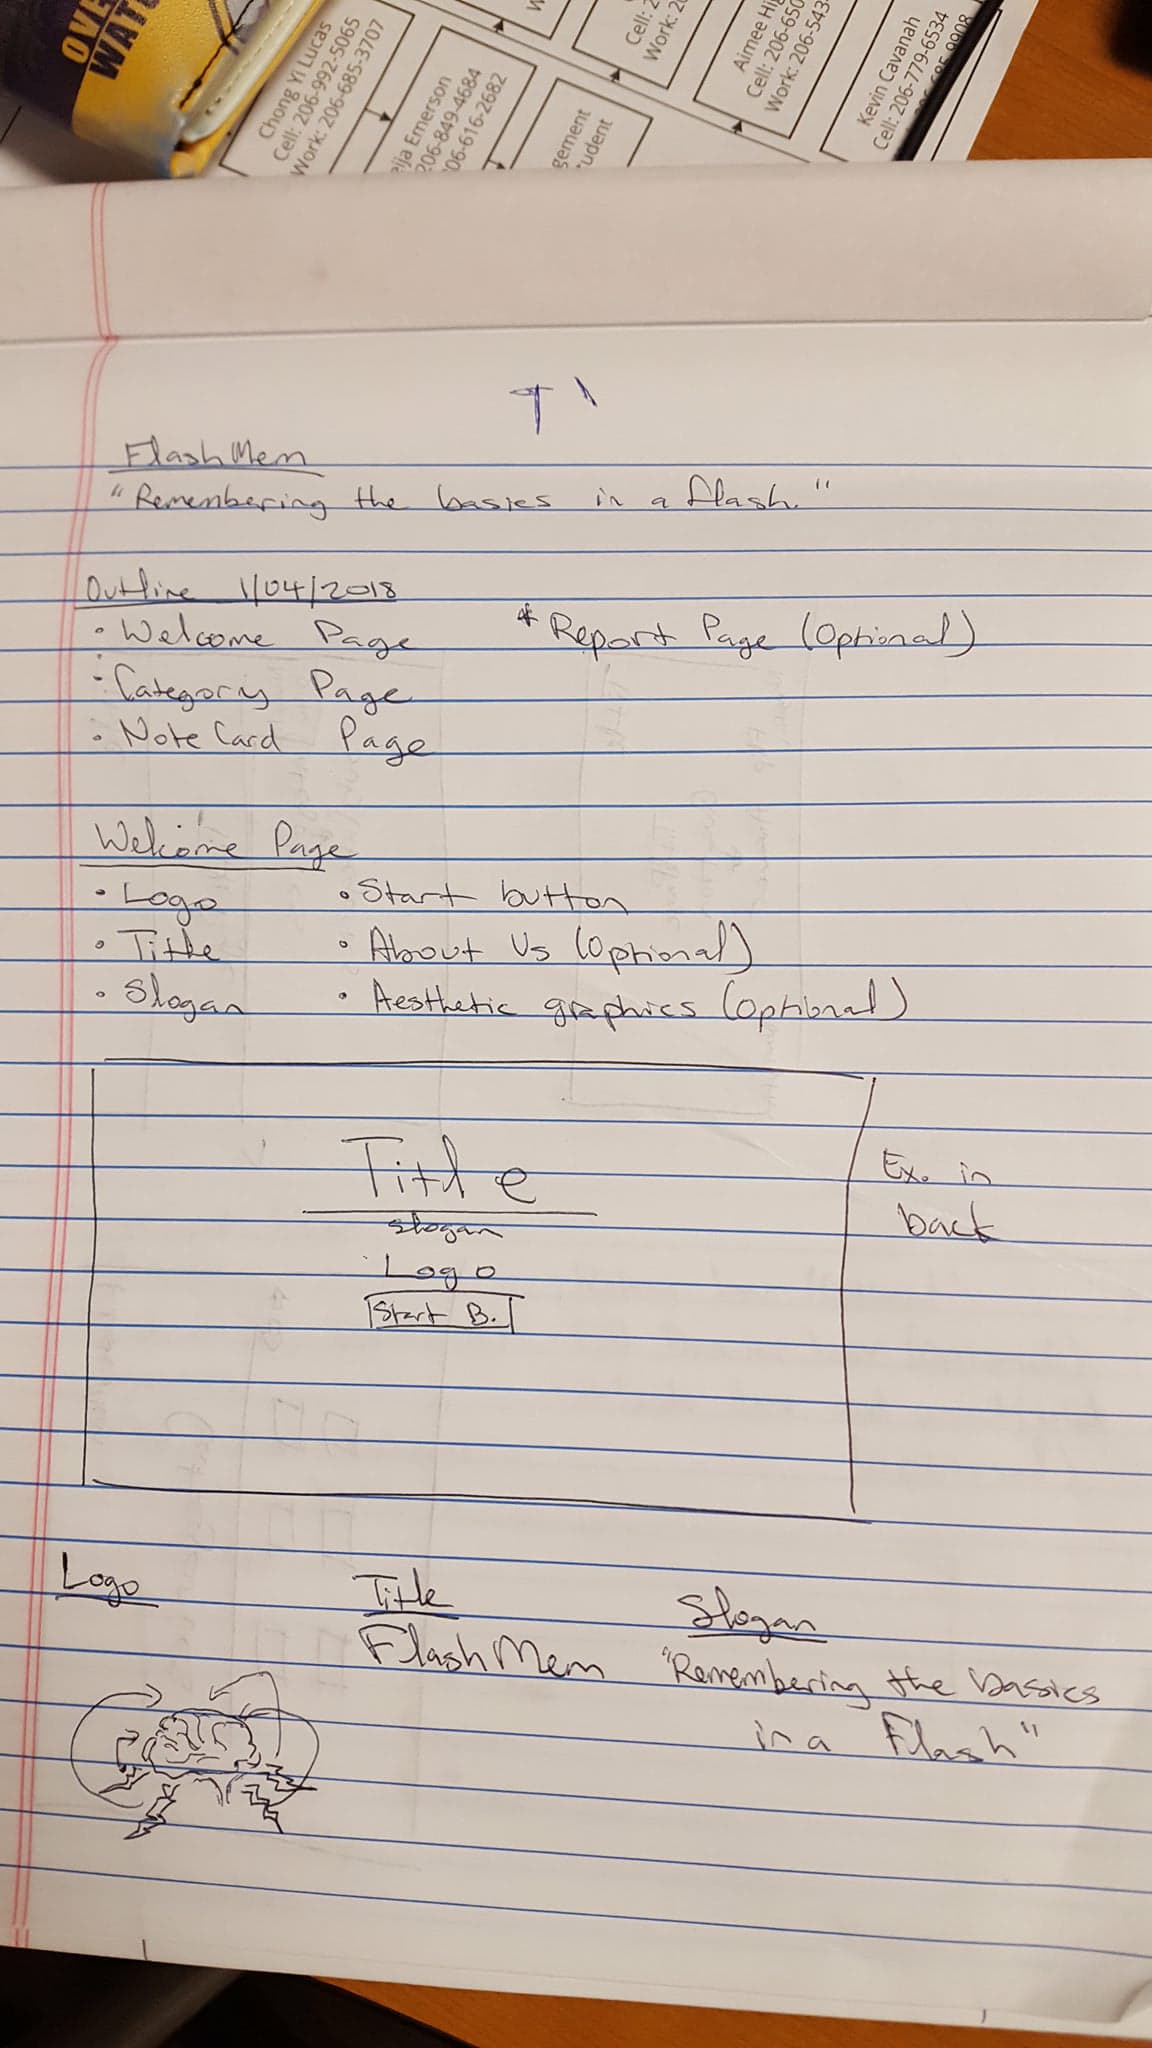 OVE
WATC
Chong Yi Lucas
Cell: 206-992-5065
Work: 206-685-3707
Emerson
206-849-4684
06-616-2682
gement
udent
Cell: 2
Work: 20
Aimee Hig
Cell: 206-650
Work: 206-543
Kevin Cavanah
Cell: 206-779-6534
FlashMem
"Remembering the basics in a flash."
Outline 1/04/2018
• Welcome Page * Report Page (Optional)
• Category Page
• NoteCard Page
Welcome Page
• Logo • Start button
• Title • About Us (Optional)
• Slogan • Aesthetic graphics (Optional)
Title
slogan
Logo
Start B.
Ex. in
back
Logo Title Slogan
FlashMem "Remembering the basics
in a Flash"